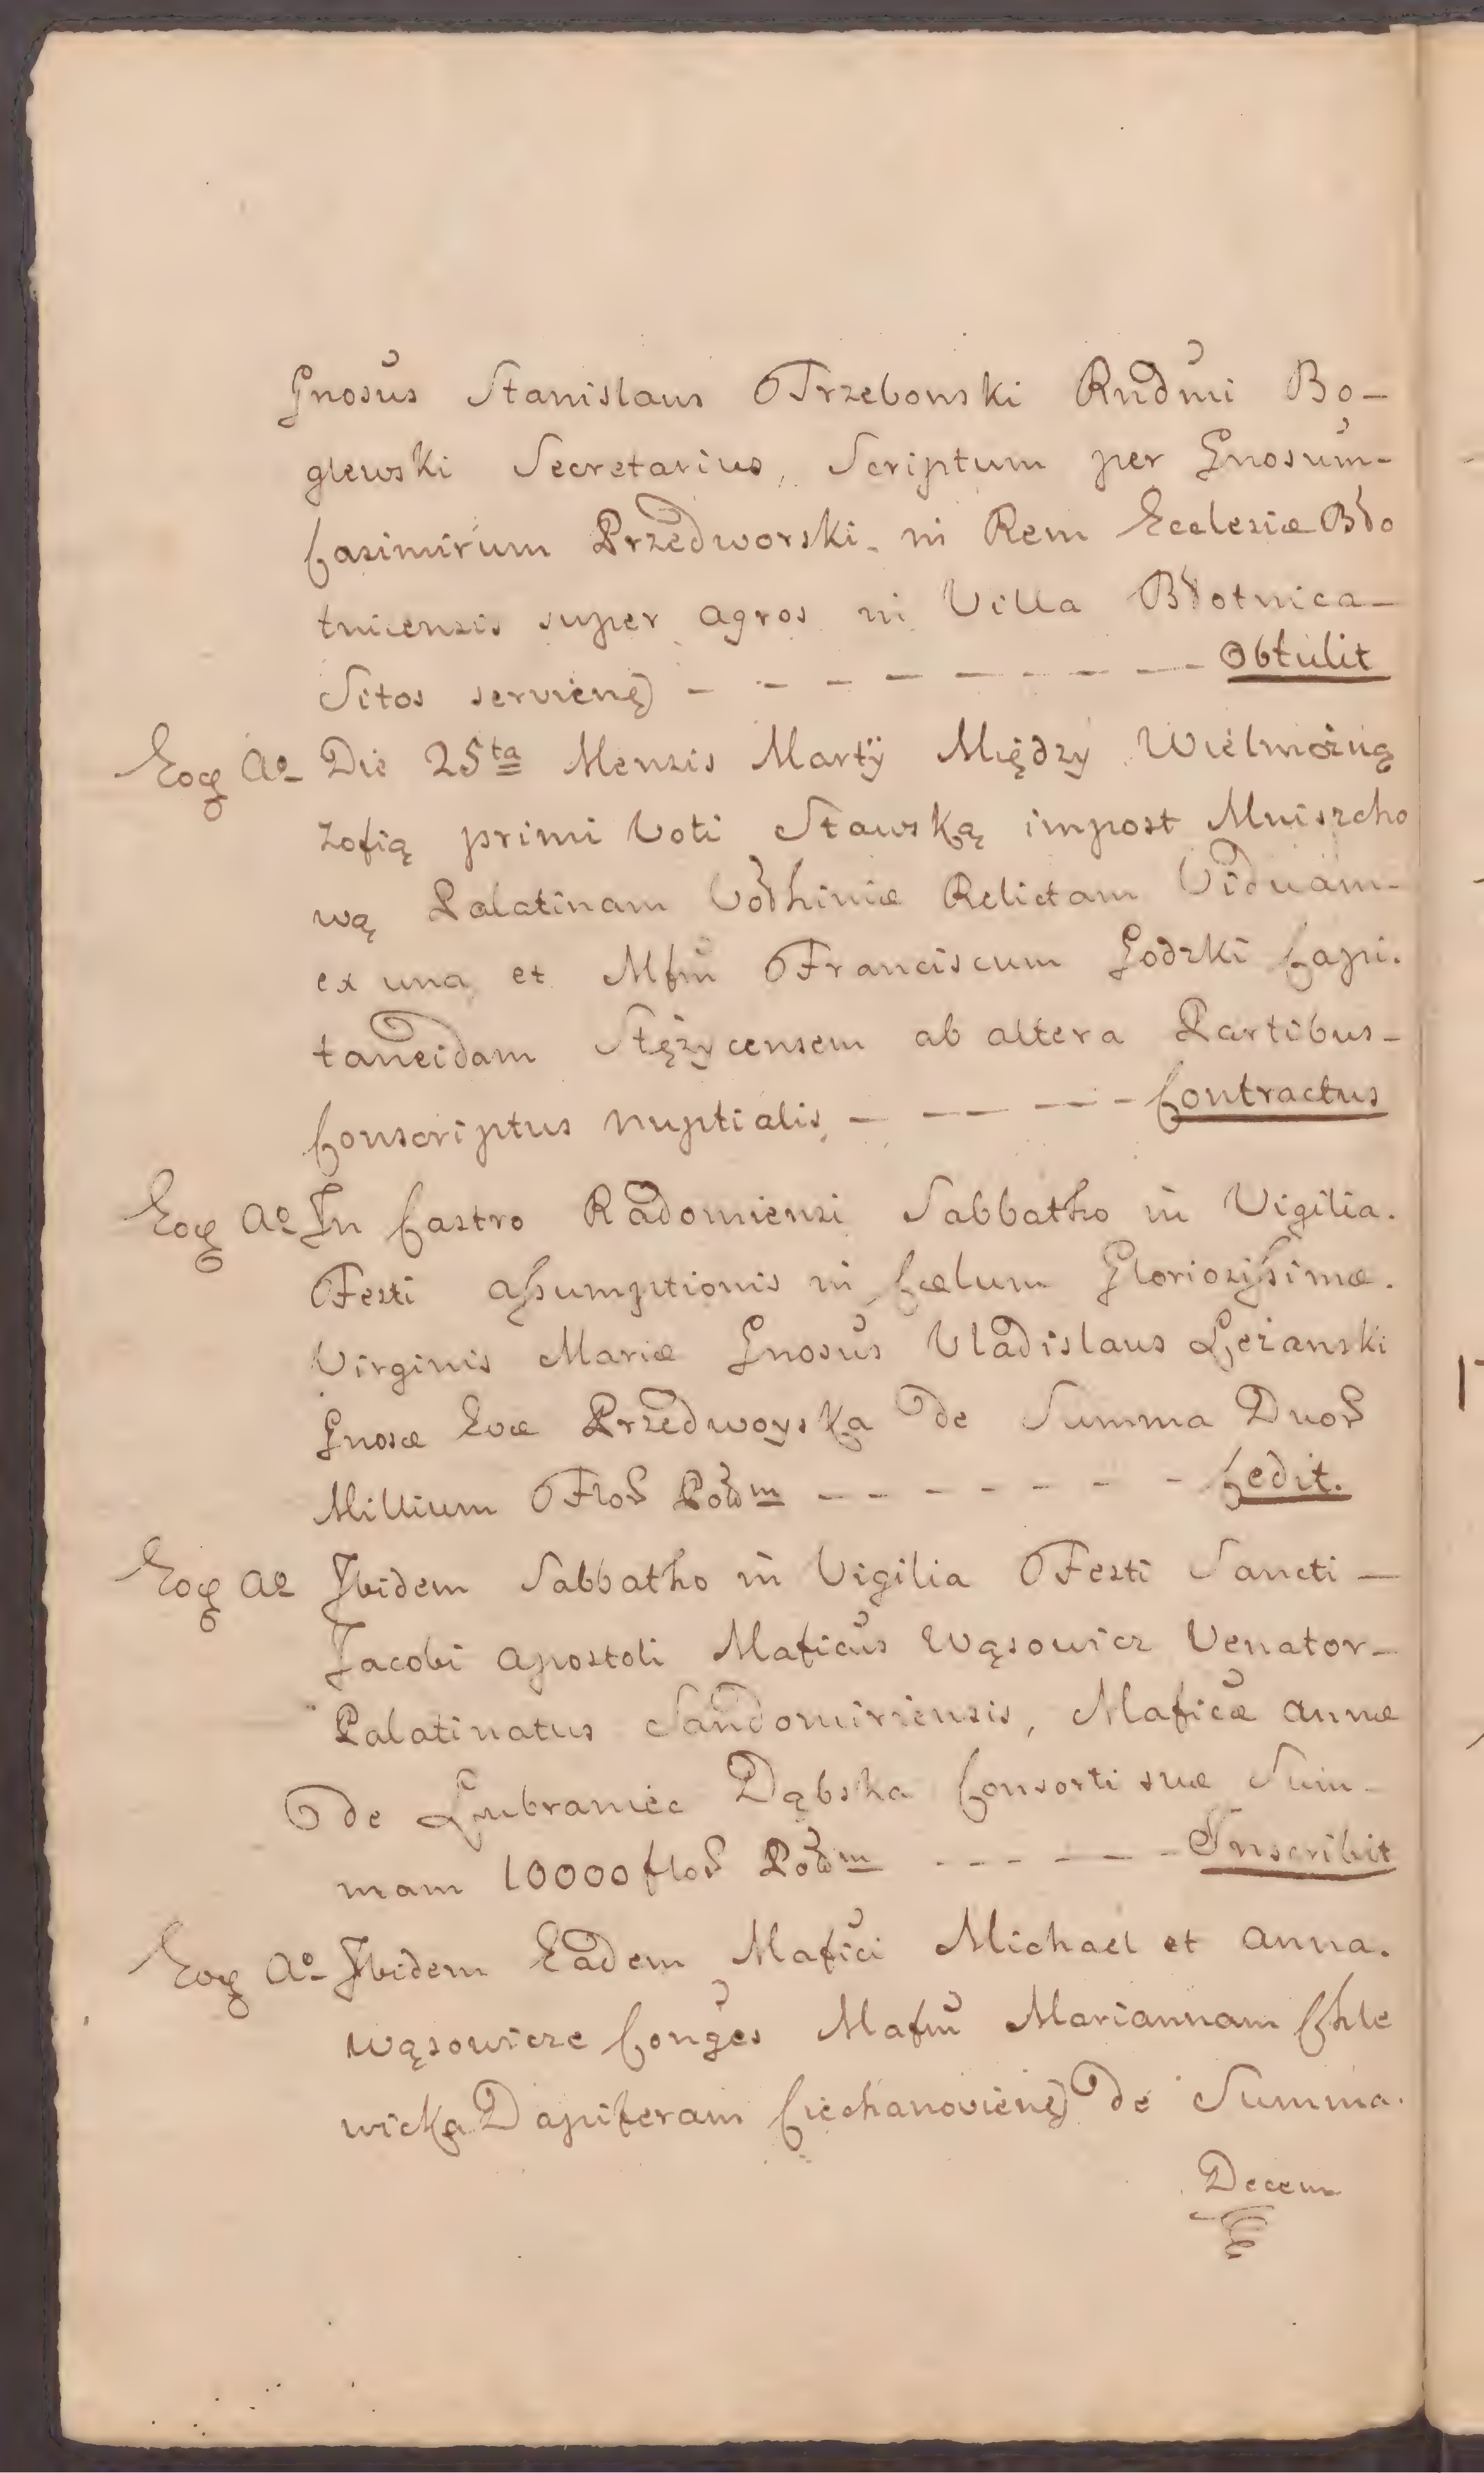 Gnosus Stanislaus Trzebowski Rndmi Bo-
glewski Secretarius, Scriptum per Gnosum-
Casimirum Przedworski in Rem Ecclesiæ Bło
tnicensis super agros in Villa Błotnica-
Sitos servienę) - - - - - - - - - Obtulit
Eoq Aº Die 25ta Mensis Martÿ Między Wielmożną
Zofią primi Voti Stawską impost Mniszcho
wą Palatinam Vołhiniæ Relictam Viduam-
ex una et Mfm Franciscum Godzki Capi.
taneidam Stężycensem ab altera Partibus-
Conscriptus nuptialis, - - - - - Contractus
Eoq Aº In Castro Radomiensi Sabbatho in Vigilia.
Festi assumptionis in Cælum Gloriosissimæ.
Virginis Mariæ Gnosus Vladislaus Leżanski
Gnosæ Evæ Przedwoyska de Summa Duoꝝ
Millium Floꝝ Polm - - - - - - - Cedit.
Eoq Aº Ibidem Sabbatho in Vigilia Festi Sancti -
Jacobi Apostoli Maficus Wąsowicz Venator-
Palatinatus Sandomiriensis, Maficæ Annæ
de Lubraniec Dąbska Consorti suæ Sum-
mam 10000 floꝝ Polm - - - - - Inscribit
Eoq Aº Ibidem Eadem Mafici Michael et Anna.
Wąsowicze Conges Mafm Mariannam Chle
wicka Dapiferam Ciechanovienę) de Summa.
Decem